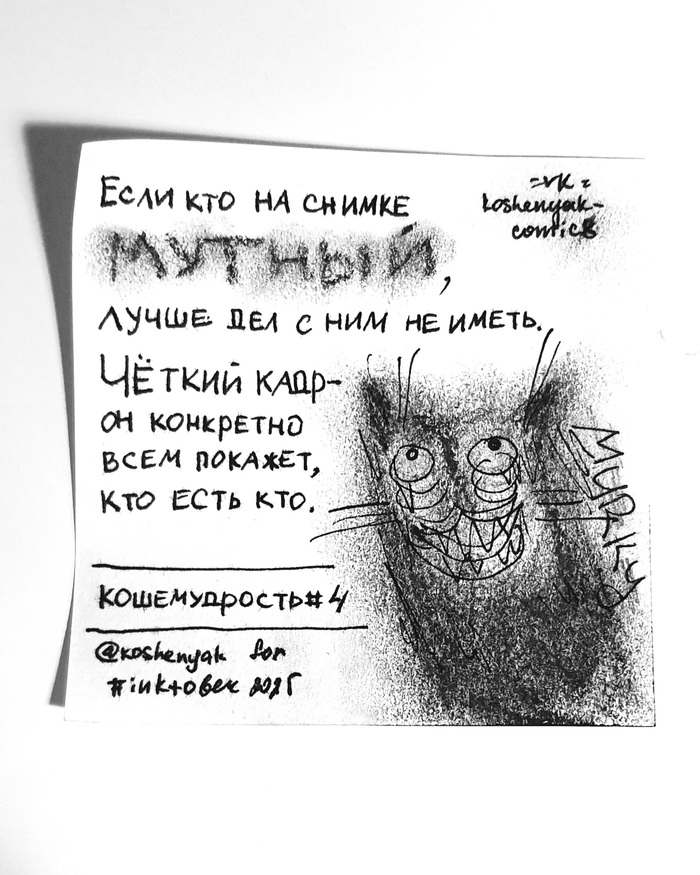 Если кто на снимке
мутный,
лучше дел с ним не иметь.
Чёткий кадр-
он конкретно
всем покажет,
кто есть кто.
кошемудрость#4
@koshenyak for
#inktober 2025
=vk=
koshenyak-
comics
MURKY